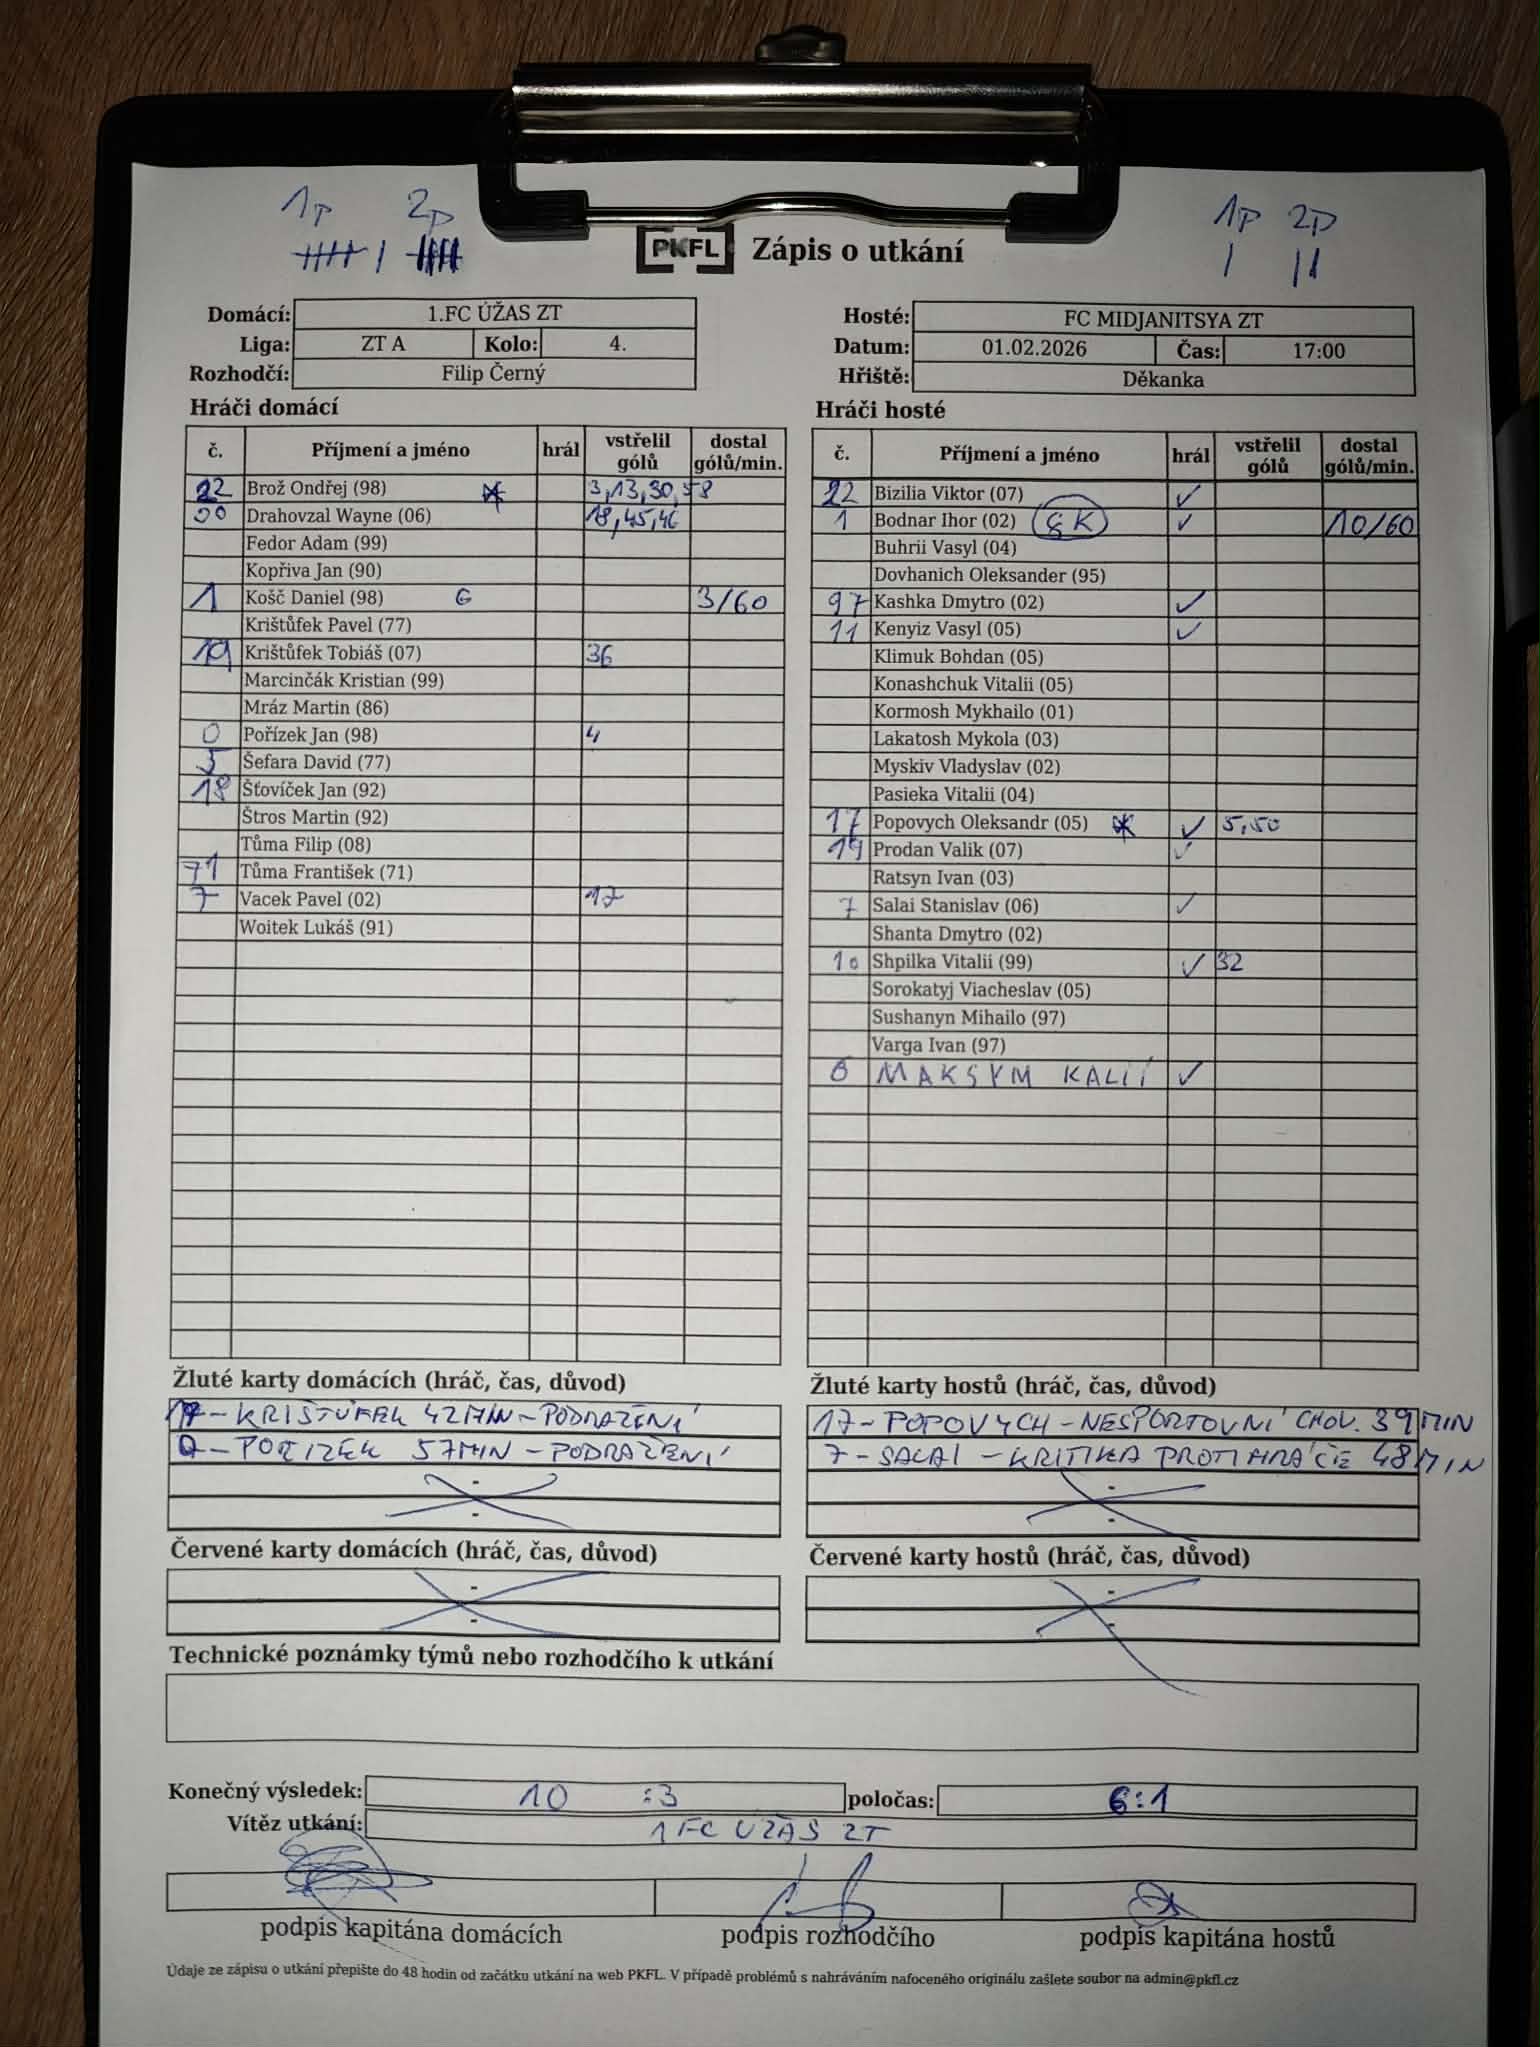 1P 2P
1P 2P
PKFL Zápis o utkání
Domácí: 1.FC ÚŽAS ZT
Liga: ZT A Kolo: 4.
Rozhodčí: Filip Černý
Hosté: FC MIDJANITSYA ZT
Datum: 01.02.2026 Čas: 17:00
Hřiště: Děkanka
Hráči domácí
č. Příjmení a jméno hrál vstřelil gólů dostal gólů/min.
22 Brož Ondřej (98) 3,13,30,58
00 Drahovzal Wayne (06) 18,45,46
Fedor Adam (99)
Kopřiva Jan (90)
1 Košč Daniel (98) G 3/60
Krištůfek Pavel (77)
19 Krištůfek Tobiáš (07) 36
Marcinčák Kristian (99)
Mráz Martin (86)
0 Pořízek Jan (98) 4
5 Šefara David (77)
18 Šťovíček Jan (92)
Štros Martin (92)
Tůma Filip (08)
71 Tůma František (71)
7 Vacek Pavel (02) 17
Woitek Lukáš (91)
Hráči hosté
č. Příjmení a jméno hrál vstřelil gólů dostal gólů/min.
22 Bizilia Viktor (07) ✓
1 Bodnar Ihor (02) GK ✓ 10/60
Buhrii Vasyl (04)
Dovhanich Oleksander (95)
97 Kashka Dmytro (02) ✓
11 Kenyiz Vasyl (05) ✓
Klimuk Bohdan (05)
Konashchuk Vitalii (05)
Kormosh Mykhailo (01)
Lakatosh Mykola (03)
Myskiv Vladyslav (02)
Pasieka Vitalii (04)
17 Popovych Oleksandr (05) ✓ 5,50
19 Prodan Valik (07) ✓
Ratsyn Ivan (03)
7 Salai Stanislav (06) ✓
Shanta Dmytro (02)
10 Shpilka Vitalii (99) ✓ 32
Sorokatyj Viacheslav (05)
Sushanyn Mihailo (97)
Varga Ivan (97)
6 MAKSYM KALII ✓
Žluté karty domácích (hráč, čas, důvod)
19 - KRIŠTŮFEK 42MIN - PODRAŽENÍ
0 - POŘIZEK 57MIN - PODRAŽENÍ
-
-
Žluté karty hostů (hráč, čas, důvod)
17 - POPOVYCH - NESPORTOVNÍ CHOV. 39 MIN
7 - SALAI - KRITIKA PROTIHRÁČE 48 MIN
-
-
Červené karty domácích (hráč, čas, důvod)
-
-
Červené karty hostů (hráč, čas, důvod)
-
-
Technické poznámky týmů nebo rozhodčího k utkání
Konečný výsledek: 10 :3 poločas: 6:1
Vítěz utkání: 1 FC ÚŽAS ZT
podpis kapitána domácích podpis rozhodčího podpis kapitána hostů
Údaje ze zápisu o utkání přepište do 48 hodin od začátku utkání na web PKFL. V případě problémů s nahráváním nafoceného originálu zašlete soubor na admin@pkfl.cz